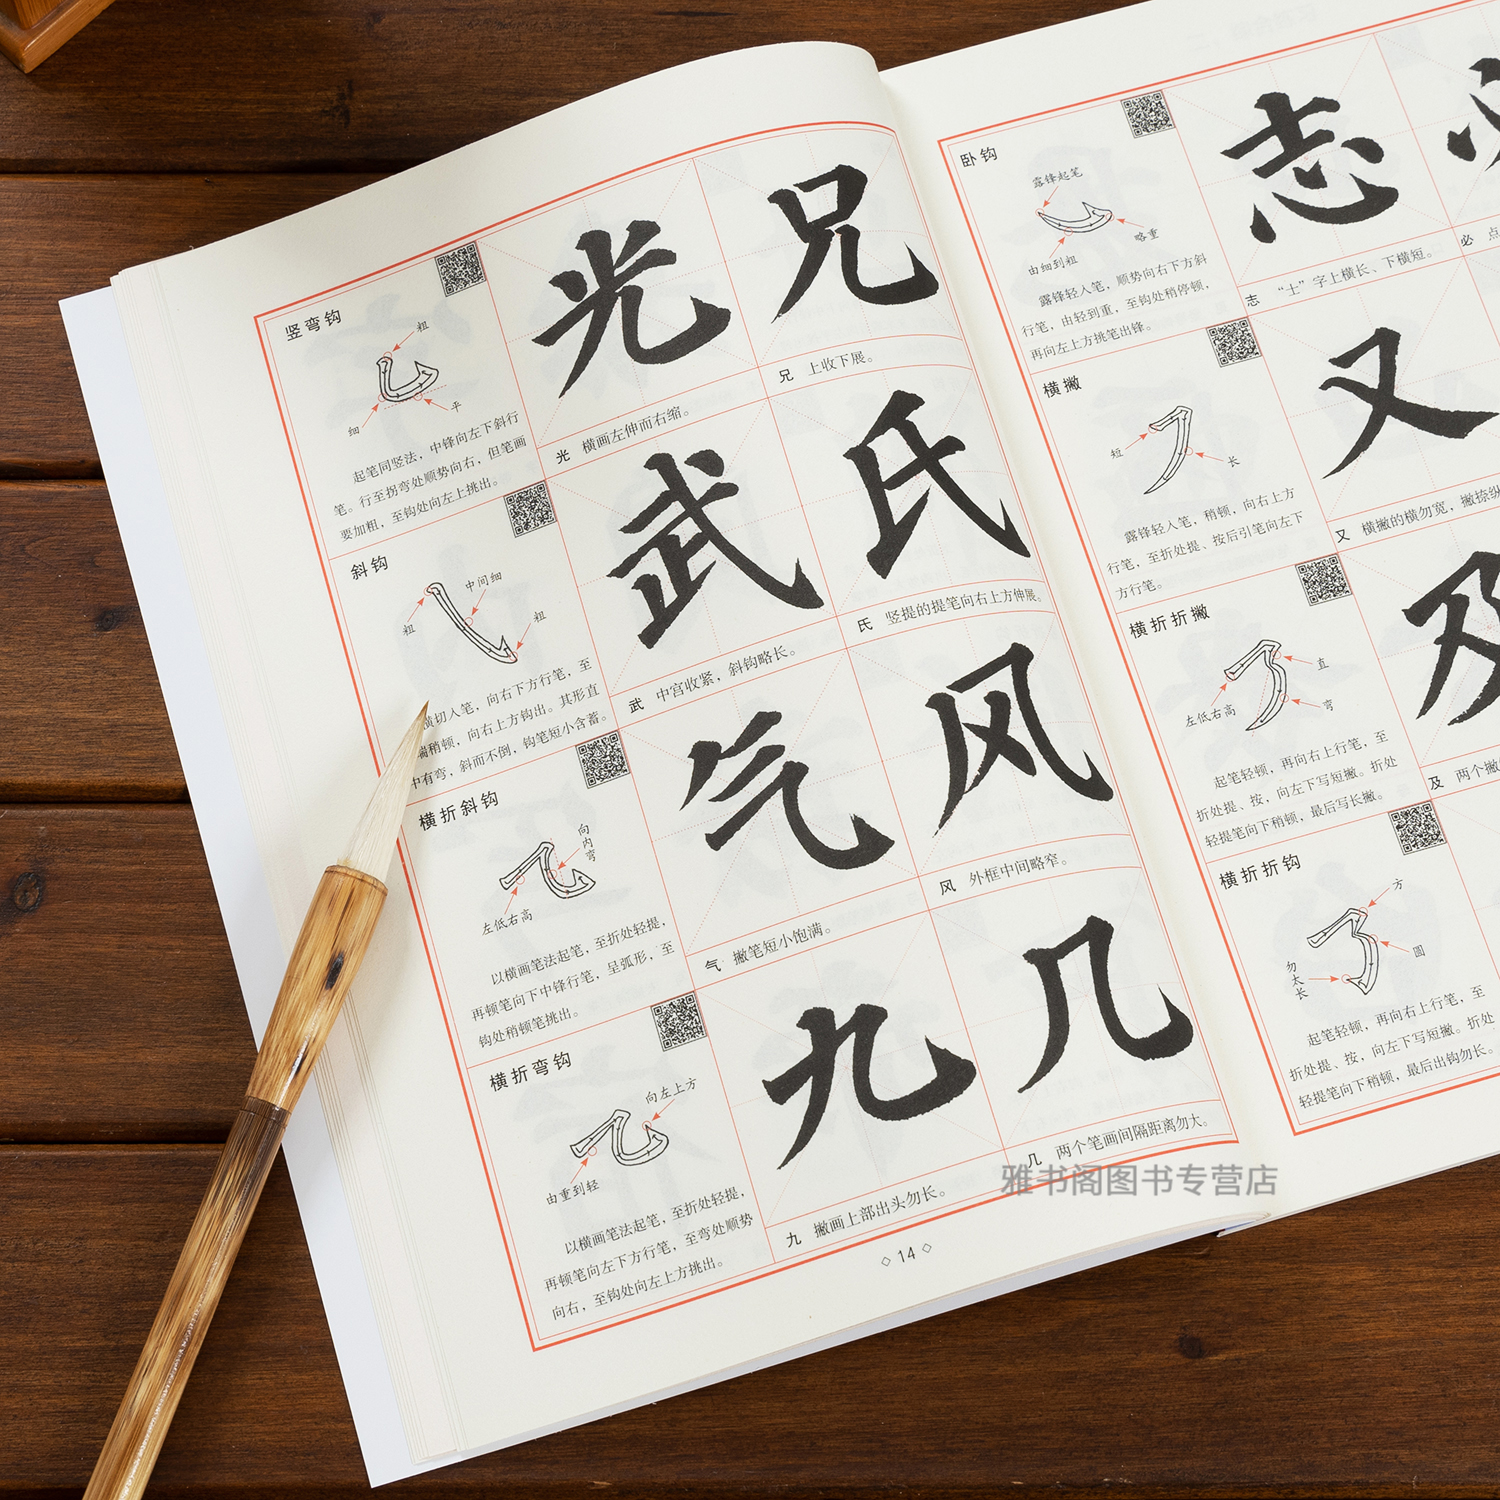 竖弯钩
粗
细
平
起笔同竖法，中锋向左下斜行
笔。行至拐弯处顺势向右，但笔画
要加粗，至钩处向左上挑出。
光
光 横画左伸而右缩。
兄
兄 上收下展。
斜钩
中间细
粗
粗
横切入笔，向右下方行笔，至
端稍顿，向右上方钩出。其形直
中有弯，斜而不倒，钩笔短小含蓄。
武
武 中宫收紧，斜钩略长。
氏
氏 竖提的提笔向右上方伸展。
横折斜钩
向内弯
左低右高
以横画笔法起笔，至折处轻提，
再顿笔向下中锋行笔，呈弧形，至
钩处稍顿笔挑出。
气
气 撇笔短小饱满。
风
风 外框中间略窄。
横折弯钩
向左上方
由重到轻
以横画笔法起笔，至折处轻提，
再顿笔向左下方行笔，至弯处顺势
向右，至钩处向左上方挑出。
九
九 撇画上部出头勿长。
几
几 两个笔画间隔距离勿大。
◇ 14 ◇
卧钩
露锋起笔
略重
由细到粗
露锋轻入笔，顺势向右下方斜
行笔，由轻到重，至钩处稍停顿，
再向左上方挑笔出锋。
志
志 “士”字上横长、下横短。
必 点
横撇
短
长
露锋轻入笔，稍顿，向右上方
行笔，至折处提、按后引笔向左下
方行笔。
又
又 横撇的横勿宽，撇捺纵
横折折撇
直
左低右高
弯
起笔轻顿，再向右上行笔，至
折处提、按，向左下写短撇。折处
轻提笔向下稍顿，最后写长撇。
及
及 两个撇
横折折钩
方
圆
勿太长
起笔轻顿，再向右上行笔，至
折处提、按，向左下写短撇。折处
轻提笔向下稍顿，最后出钩勿长。
雅书阁图书专营店